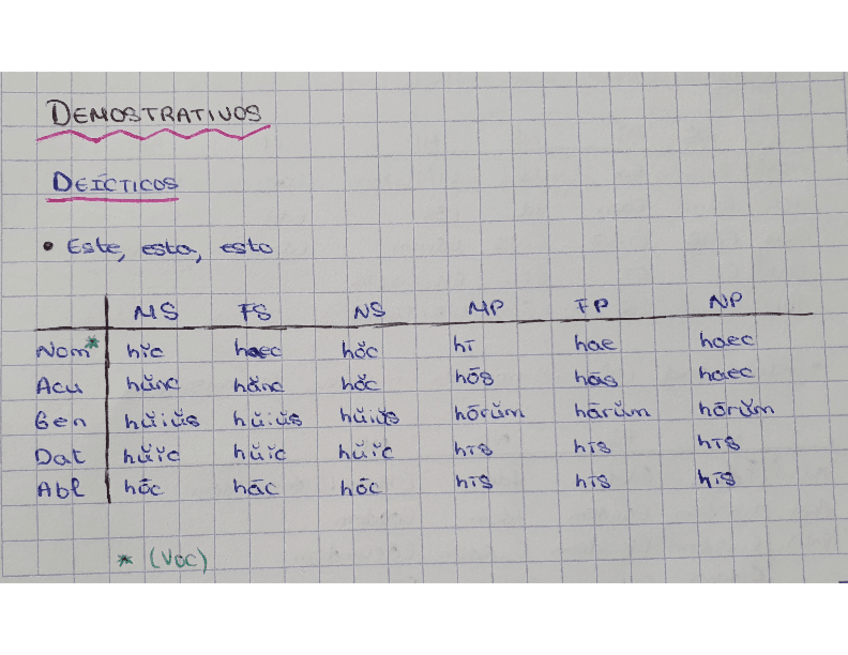 DEMOSTRATIVOS
DEÍCTICOS
• Este, esta, esto
MS FS NS MP FP NP
Nom* hĭc haec hŏc hī hae haec
Acu hŭnc hănc hŏc hōs hās haec
Gen hŭiŭs hŭiŭs hŭiŭs hōrŭm hārŭm hōrŭm
Dat hŭĭc hŭĭc hŭĭc hīs hīs hīs
Abl hōc hāc hōc hīs hīs hīs
* (Voc)